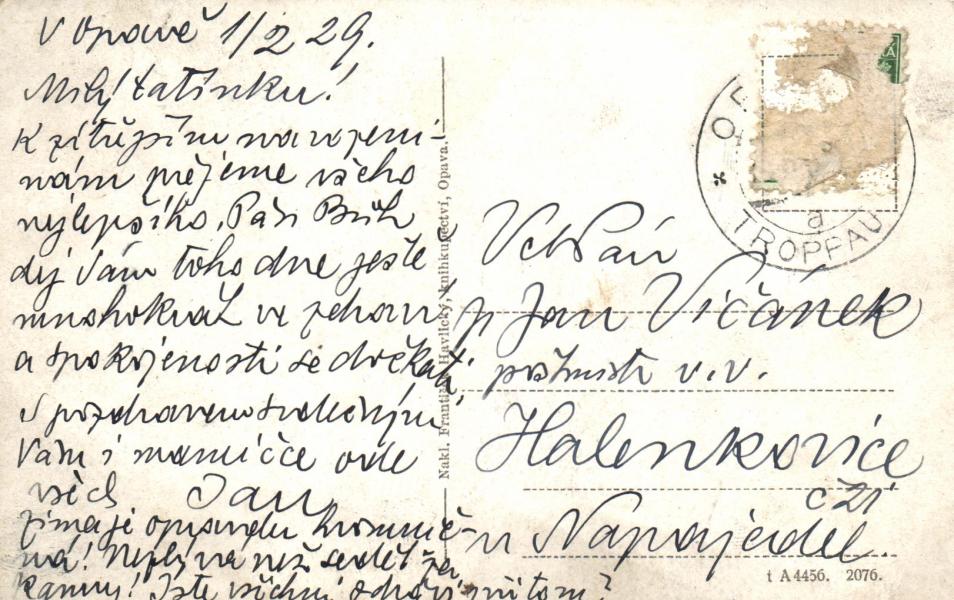 V Opavě 1/2 29.
Milý tatínku!
K zítřejším narozeni-
nám přejeme všeho
nejlepšího. Pán Bůh
dej Vám toho dne ještě
mnohokrát ve zdraví
a spokojenosti se dočkati,
S pozdravem srdečným
Vám i mamičce ode
všech Jan
Zima je opravdu hromnič-
ná! Nejlépe než seděti za
kamny! Jste všichni zdrávi
Nakl. František Havlíček, knihkupectví, Opava.
TROPPAU
d
Vct Pán
p Jan Vičánek
poštmistr v.v.
Halenkovice
čzi
u Napajedel.
t A4456. 2076.